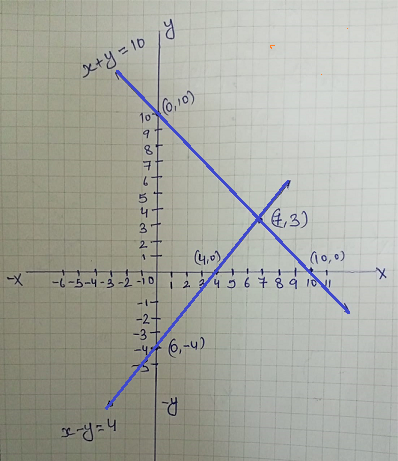 y
x+y=10
(0,10)
10
9
8
7
6
5
4
3
2
1
(7,3)
(4,0)
(10,0)
-x
x
-6 -5 -4 -3 -2 -1 0 1 2 3 4 5 6 7 8 9 10 11
-1
-2
-3
-4
-5
(0,-4)
-y
x-y=4